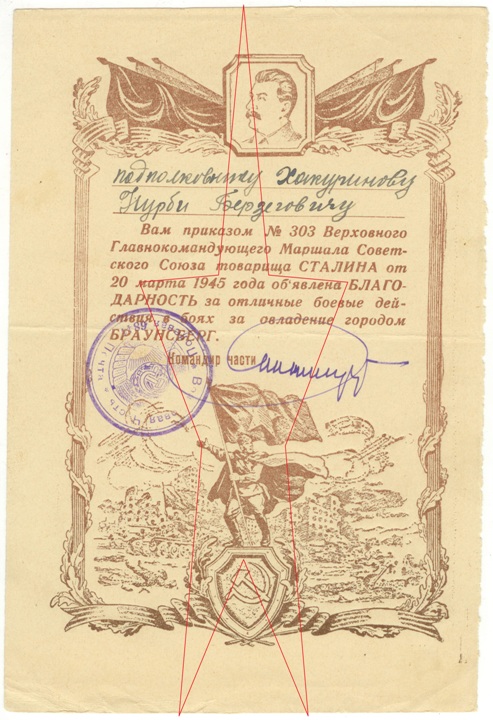 подполковнику Хакуринову
Нурби Бердеговичу
Вам приказом № 303 Верховного
Главнокомандующего Маршала Совет-
ского Союза товарища СТАЛИНА от
20 марта 1945 года об'явлена БЛАГО-
ДАРНОСТЬ за отличные боевые дей-
ствия в боях за овладение городом
БРАУНСБЕРГ.
Командир части